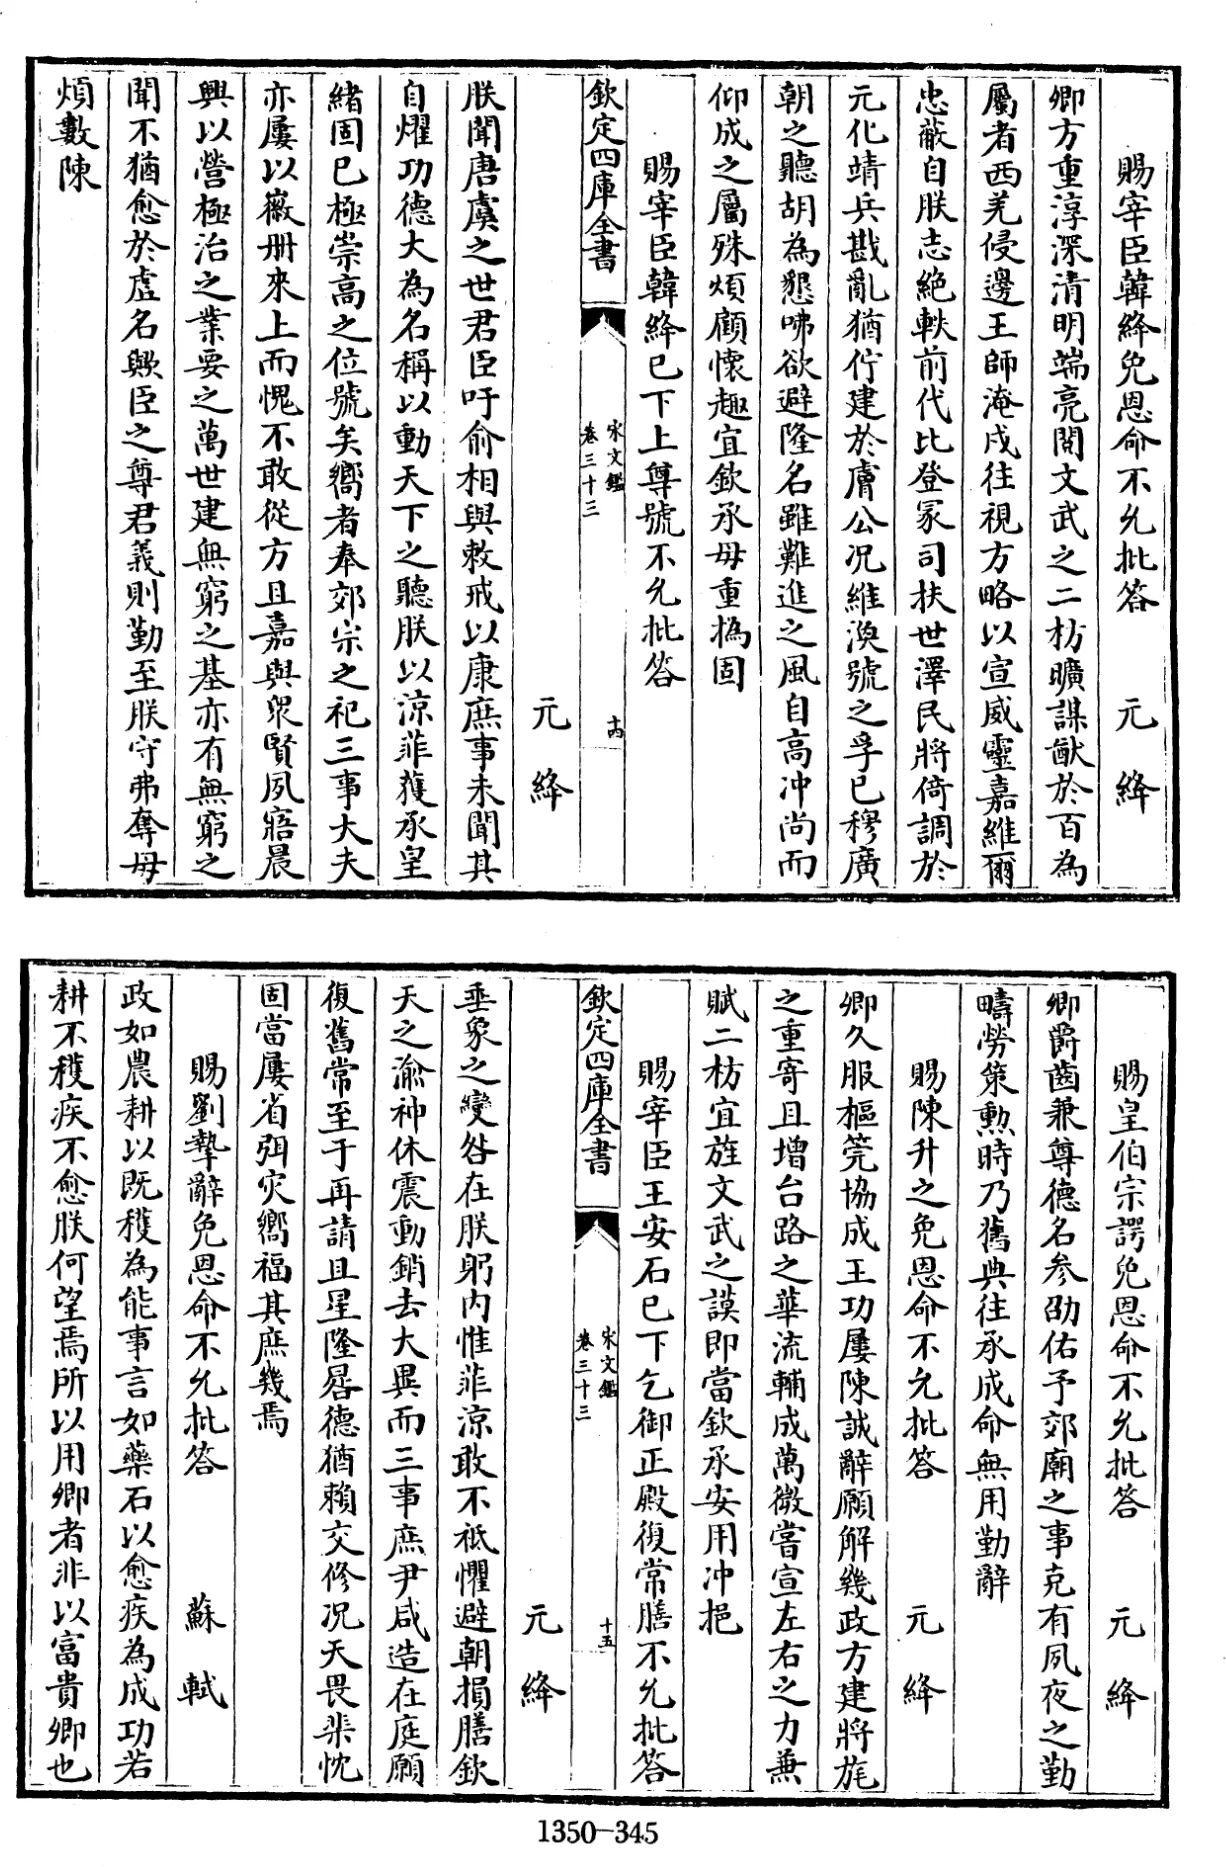 賜宰臣韓絳免恩命不允批答 元絳
卿方重淳深清明端亮閱文武之二枋曠謀猷於百為
屬者西羌侵邊王師淹戍往視方略以宣威靈嘉維爾
忠蔽自朕志絶軼前代比登冢司扶世澤民將倚調於
元化靖兵戡亂猶佇建於膚公况維渙號之孚已穆廣
朝之聽胡為懇咈欲避隆名雖難進之風自高冲尚而
仰成之屬殊煩顧懷趣宜欽承毋重撝固
賜宰臣韓絳已下上尊號不允批答
欽定四庫全書
宋文鑑
卷三十三
十四
元絳
朕聞唐虞之世君臣吁俞相與敕戒以康庶事未聞其
自燿功德大為名稱以動天下之聽朕以涼菲獲承皇
緒固已極崇高之位號矣嚮者奉郊宗之祀三事大夫
亦屢以徽册來上而愧不敢從方且嘉與衆賢夙寤晨
興以營極治之業要之萬世建無窮之基亦有無窮之
聞不猶愈於虚名歟臣之尊君義則勤至朕守弗奪毋
煩數陳
賜皇伯宗諤免恩命不允批答 元絳
卿爵齒兼尊德名參劭佑予郊廟之事克有夙夜之勤
疇勞策勲時乃舊典往承成命無用勤辭
賜陳升之免恩命不允批答 元絳
卿久服樞筦協成王功屢陳誠辭願解幾政方建將旄
之重寄且增台路之華流輔成萬微嘗宣左右之力兼
賦二枋宜旌文武之謨即當欽承安用冲挹
賜宰臣王安石已下乞御正殿復常膳不允批答
欽定四庫全書
宋文鑑
卷三十三
十五
元絳
垂象之變咎在朕躬内惟菲涼敢不祗懼避朝損膳欽
天之渝神休震動銷去大異而三事庶尹咸造在庭願
復舊常至于再請且星隆晷德猶賴交修况天畏棐忱
固當屢省弭灾嚮福其庶幾焉
賜劉摯辭免恩命不允批答 蘇軾
政如農耕以既穫為能事言如藥石以愈疾為成功若
耕不穫疾不愈朕何望焉所以用卿者非以富貴卿也
1350-345